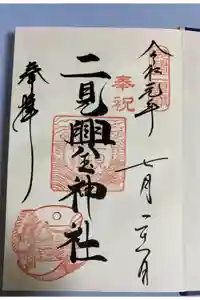 令和元年
七月二日
奉祝
二見興玉神社
奉拝